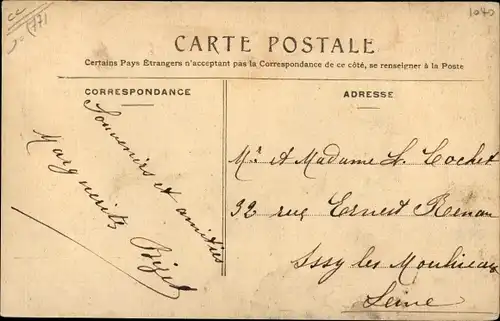 1040
(77)
CARTE POSTALE
Certains Pays Étrangers n'acceptant pas la Correspondance de ce côté, se renseigner à la Poste
CORRESPONDANCE
Souvenirs et amitiés
Marguerite
ADRESSE
Mr et Madame L. Cochet
32 rue Ernest Renan
Issy les Moulineaux
Seine